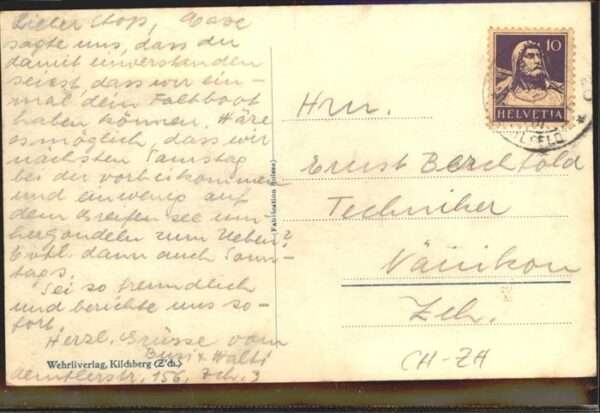 Lieber Chops, Gaxe
sagte uns, dass du
damit einverstanden
seiest, dass wir ein-
mal dein Faltboot
haben können. Wäre
es möglich, dass wir
nächsten Samstag
bei dir vorbeikommen
und ein wenig auf
dem Greifensee um-
hergondeln zum Ueben?
Evtl. dann auch Sonn-
tags.
Sei so freundlich
und berichte uns so-
fort.
Herzl. Grüsse vom
+ Walti
Aemtlerstr. 156, Zch. 3
Wehrliverlag, Kilchberg (Zch.)
(Fabrication Suisse)
10
HELVETIA
Hrn.
Ernst Berchtold
Techniker
Nänikon
Zch.
CH-ZH